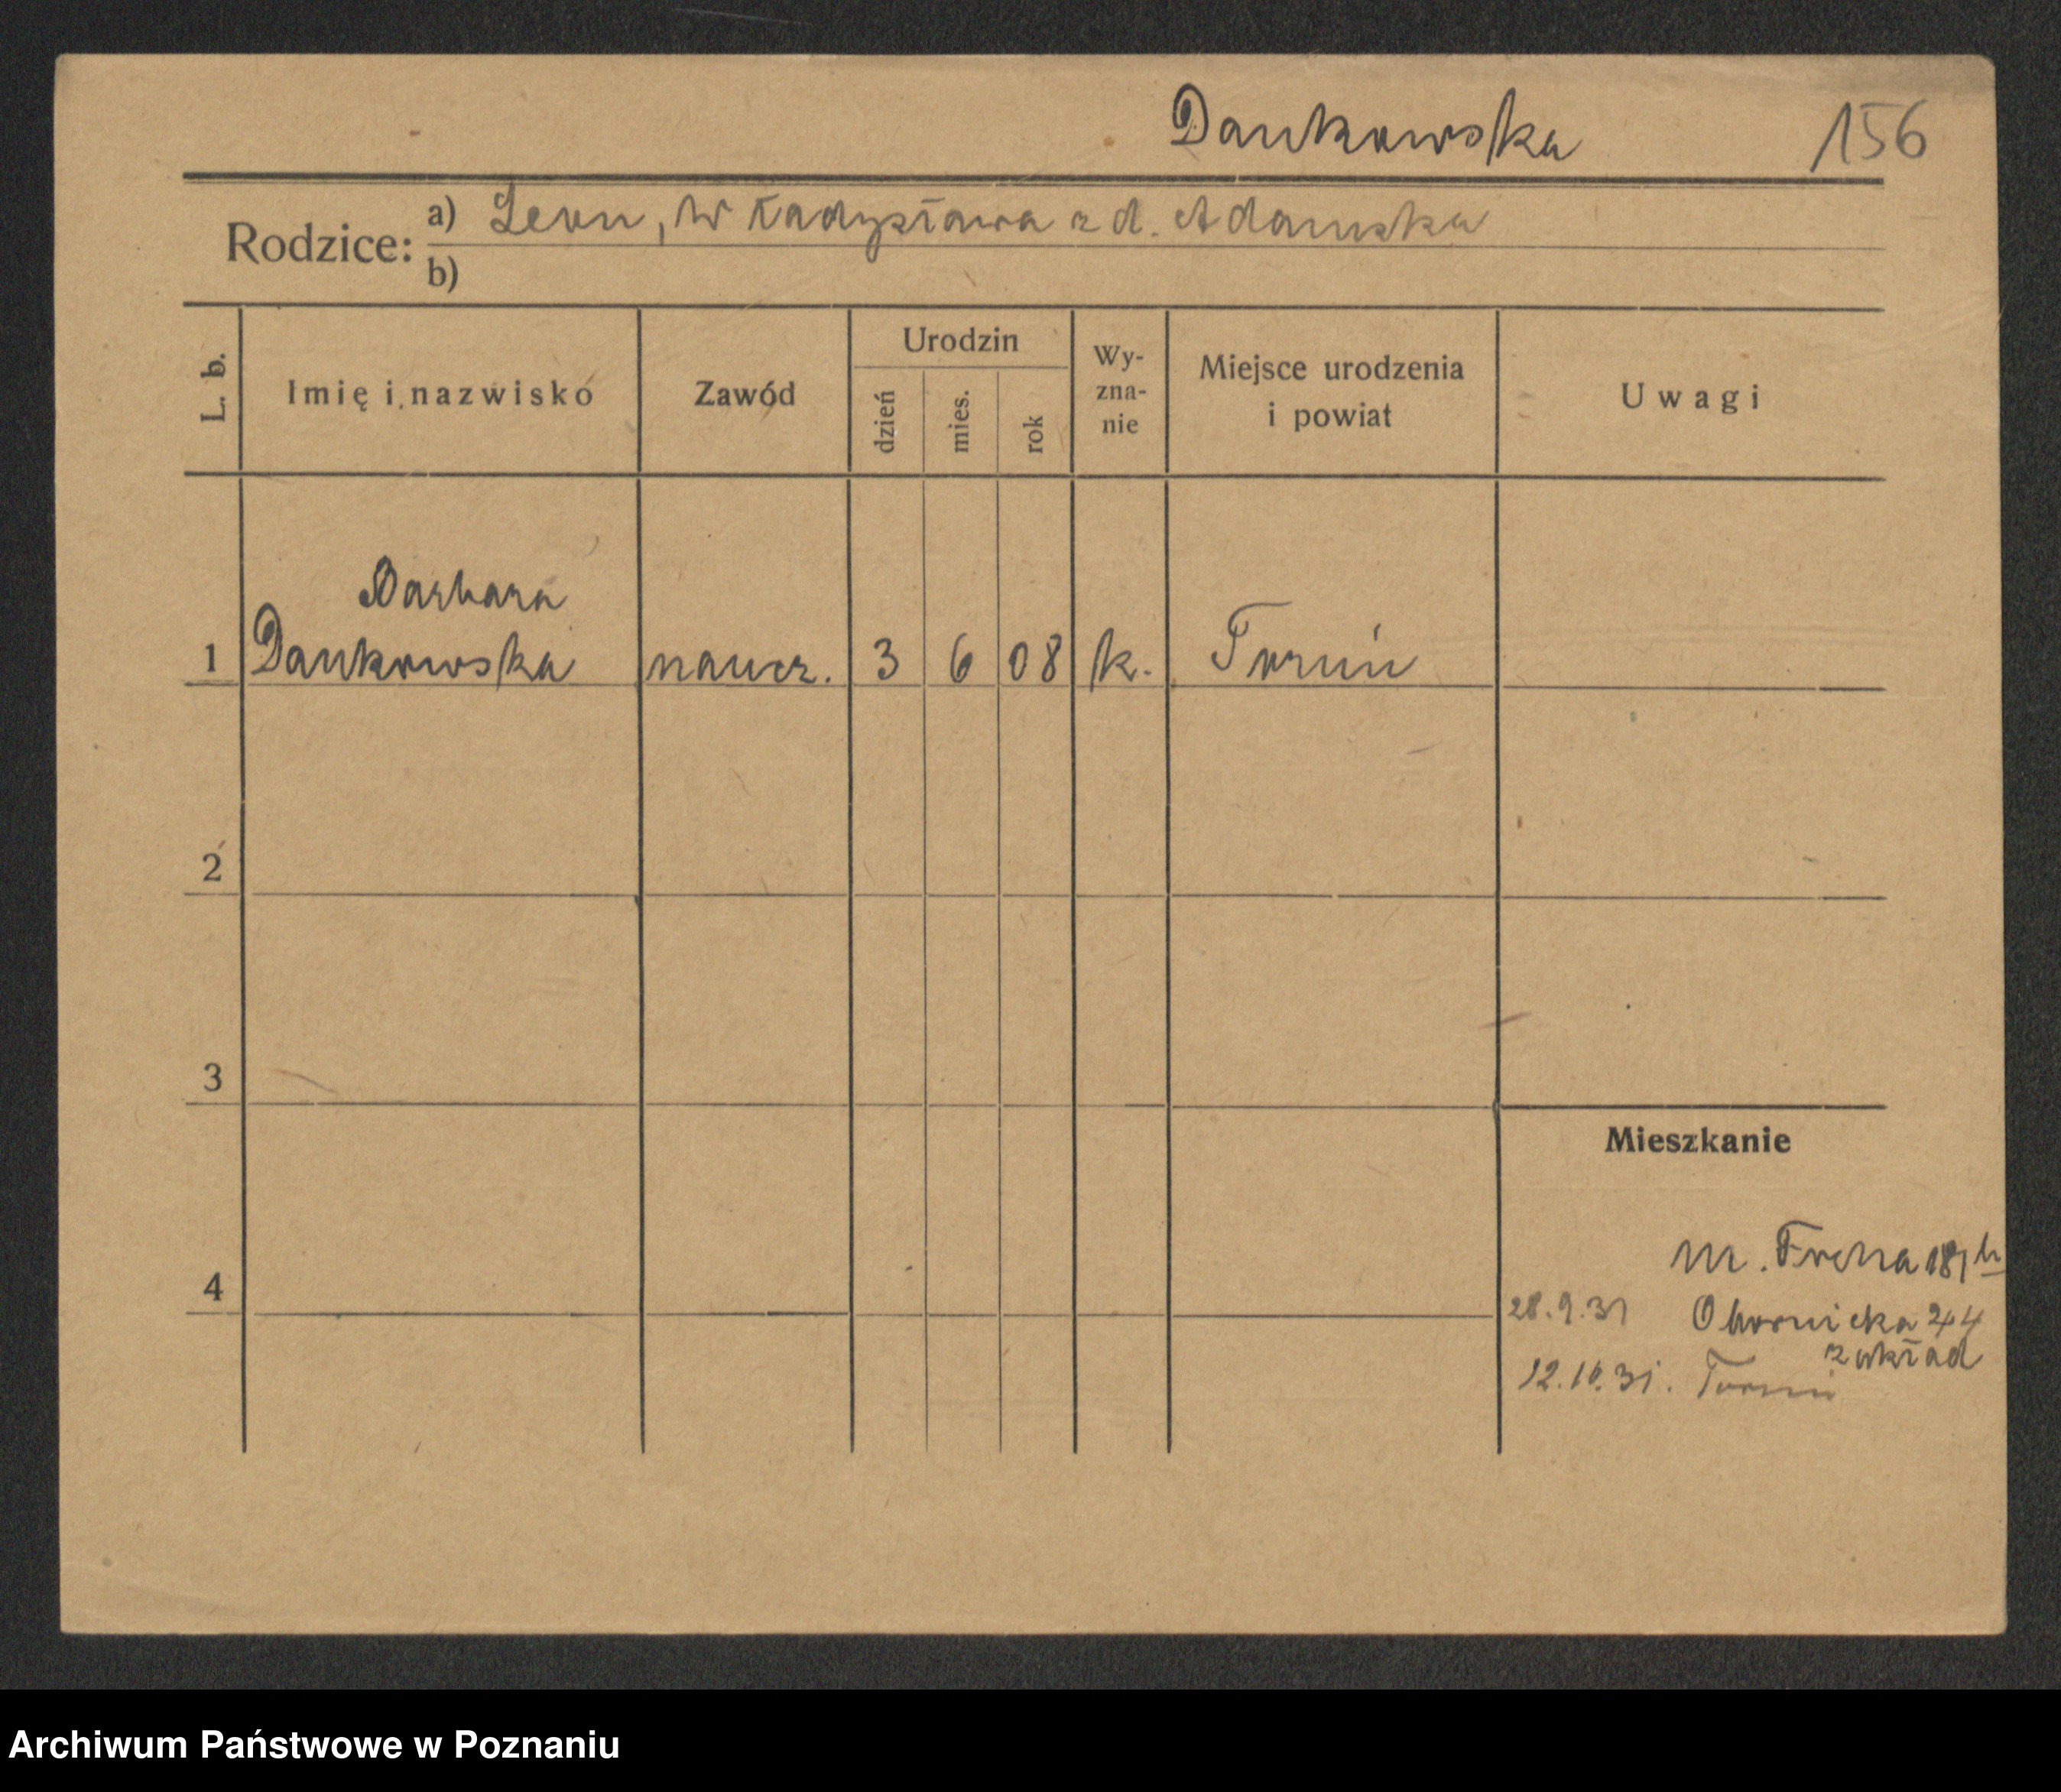 Dankowska 156
Rodzice: a) Leon, Władysława z d. Adamska
b)
L. b. Imię i nazwisko Zawód Urodzin dzień mies. rok Wy-zna-nie Miejsce urodzenia i powiat Uwagi
Barbara
1 Dankowska naucz. 3 6 08 k. Toruń
2
3
Mieszkanie
m. Focha
4
28.9.31 Obornicka 244
zakład
12.10.31. Toruń
Archiwum Państwowe w Poznaniu